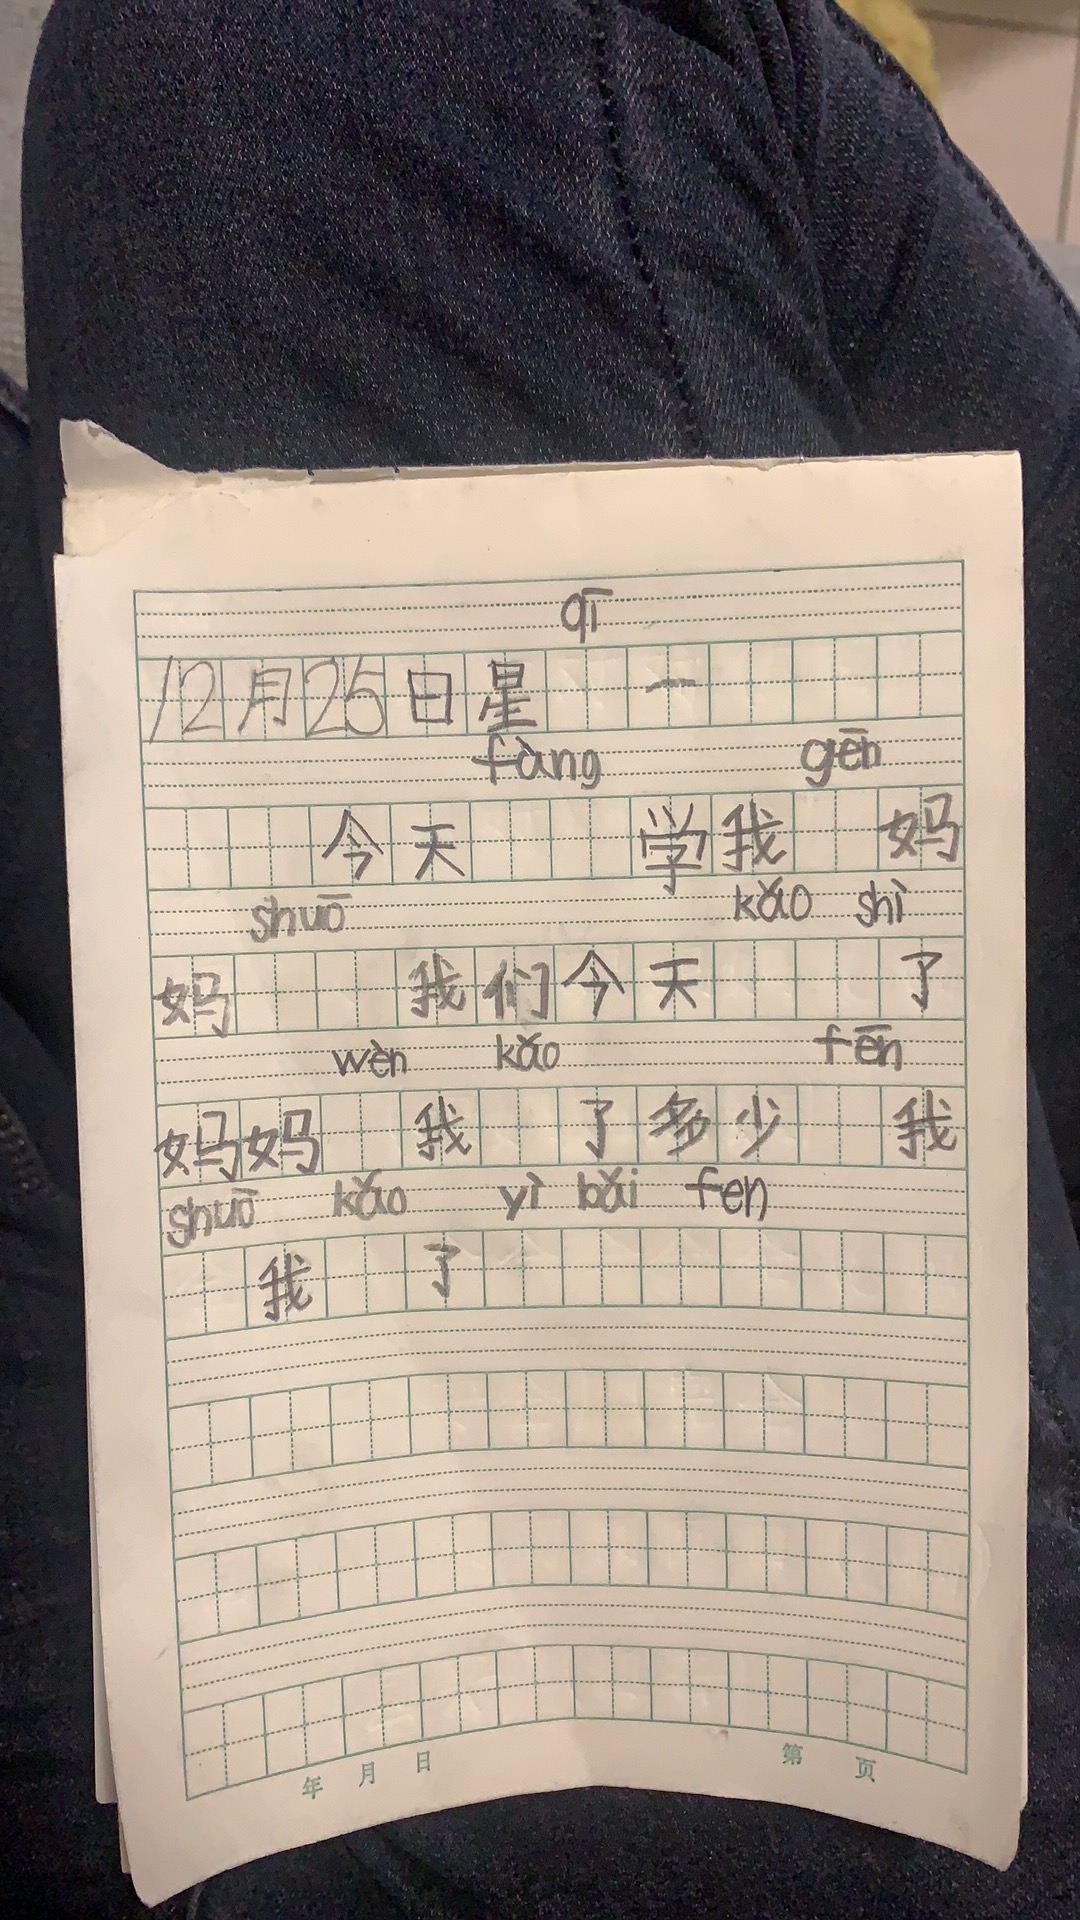 qī
12月25日星 一
fàng gēn
今天 学我 妈
shuō kǎo shì
妈 我们今天 了
wèn kǎo fēn
妈妈 我 了多少 我
shuō kǎo yì bǎi fen
我 了
年 月 日 第 页